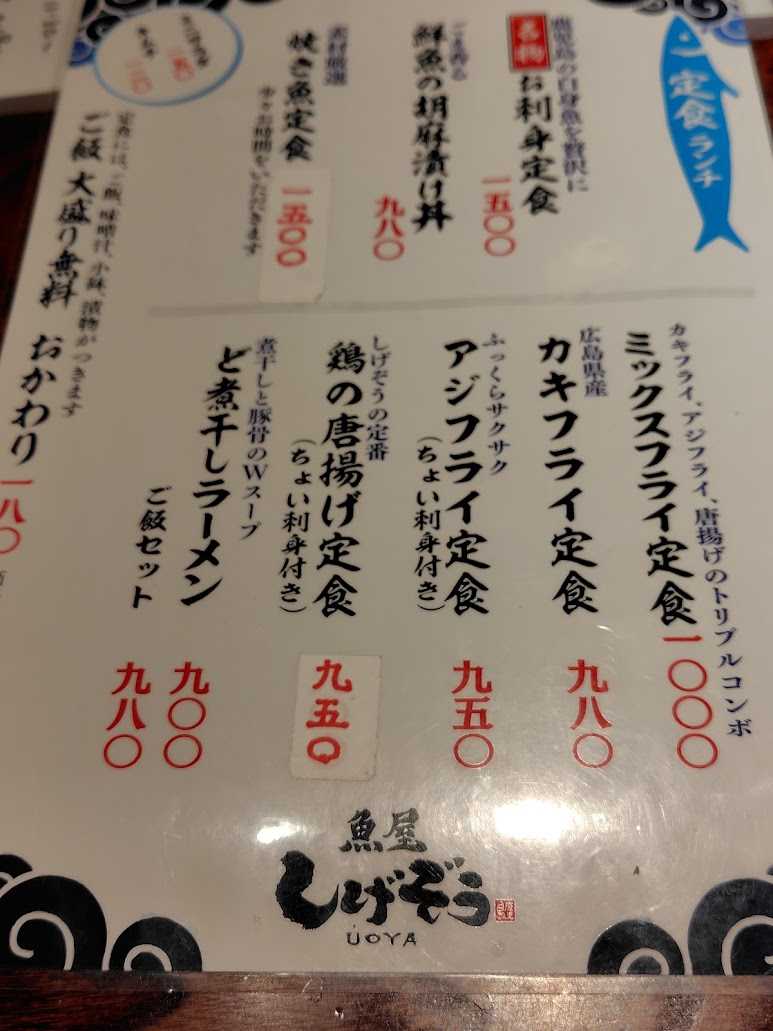 定食ランチ
鹿児島の白身魚を贅沢に
名物
お刺身定食
一五〇〇
ごま香る
鮮魚の胡麻漬け丼
九八〇
素材厳選
焼き魚定食
少々お時間をいただきます
一五〇〇
カキフライ、アジフライ、唐揚げのトリプルコンボ
ミックスフライ定食
一〇〇〇
広島県産
カキフライ定食
九八〇
ふっくらサクサク
アジフライ定食
(ちょい刺身付き)
九五〇
しげぞうの定番
鶏の唐揚げ定食
(ちょい刺身付き)
九五〇
煮干しと豚骨のWスープ
ど煮干しラーメン
九〇〇
ご飯セット
九八〇
定食には、ご飯、味噌汁、小鉢、漬物がつきます
ご飯 大盛り無料 おかわり 一八〇
魚屋
しげぞう
UOYA